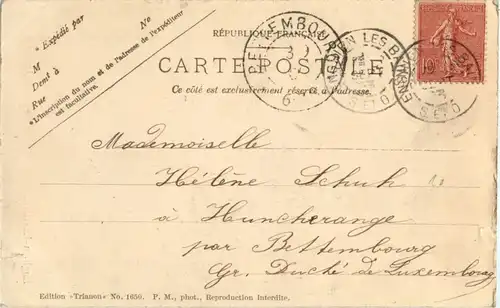 * Expédié par No
M
Demt à
Rue
*L'inscription du nom et de l'adresse de l'expéditeur
est facultative.
RÉPUBLIQUE FRANÇAISE
CARTE POSTALE
Ce côté est exclusivement réservé à l'adresse.
BETTEMBOURG
LES BAINS
S. ET O
10
Mademoiselle
Hélène Schuh
à Huncherange
par Bettembourg
Gr. Duché de Luxembourg
Edition «Trianon» No. 1650. P. M., phot., Reproduction Interdite.